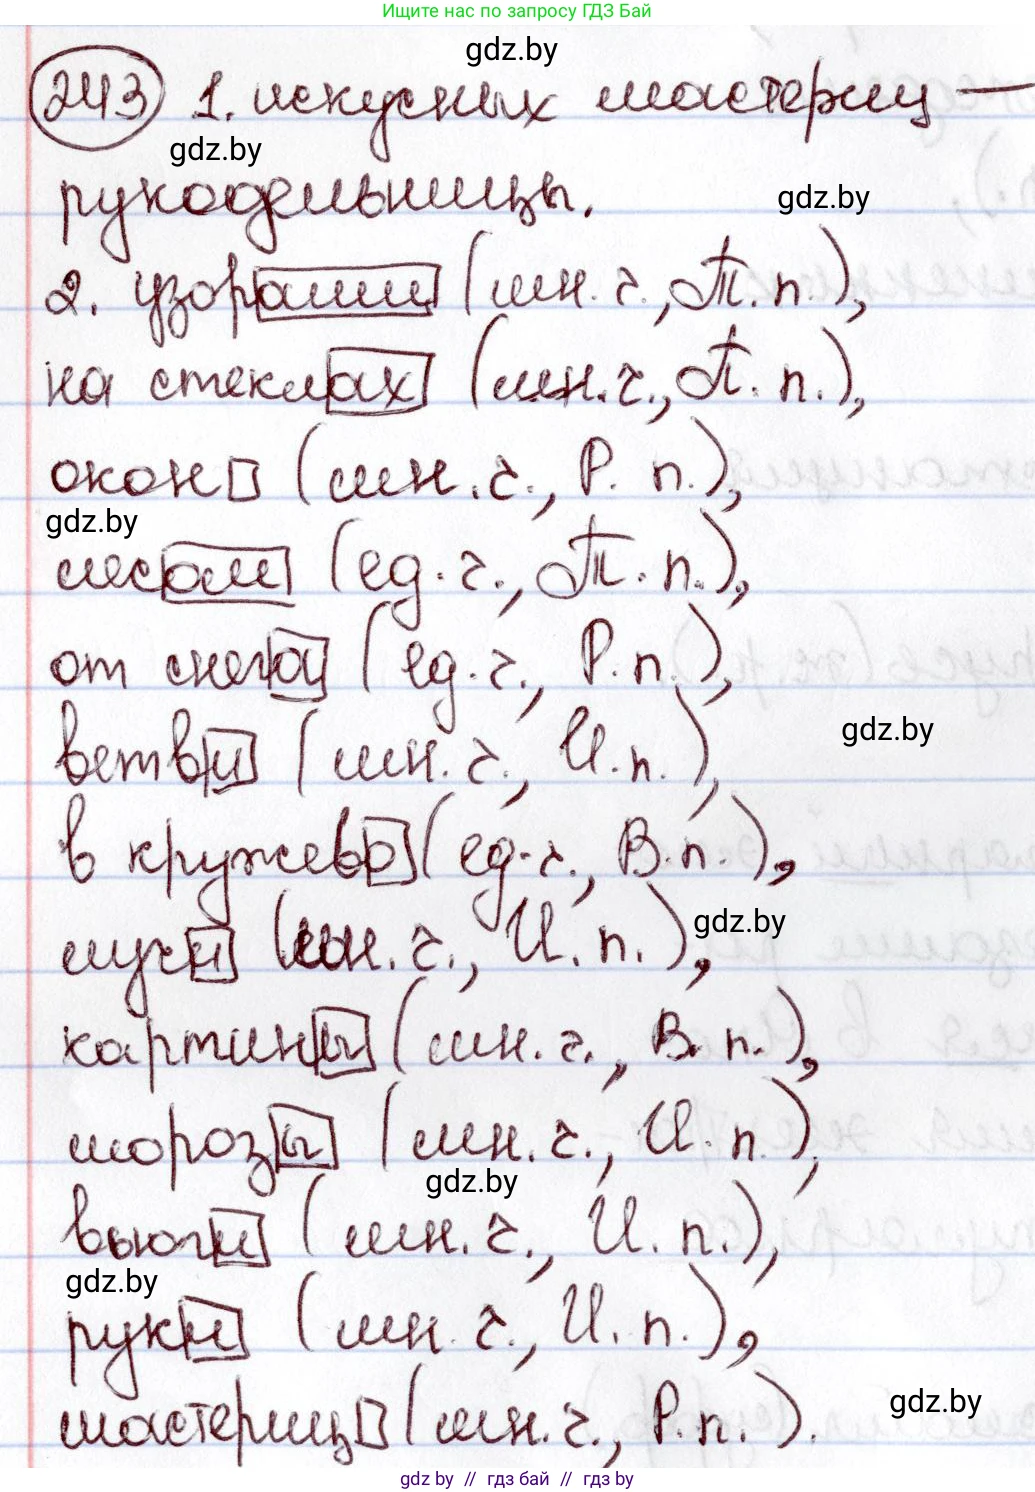 Ищите нас по запросу ГДЗ Бай
gdz.by
243 1. искусных мастериц —
gdz.by
рукодельницы.
gdz.by
2. узорами (мн. ч., Т. п.),
на стеклах (мн. ч., П. п.),
окон (мн. ч., Р. п.),
gdz.by
лесом (ед. ч., Т. п.),
от снега (ед. ч., Р. п.),
gdz.by
ветви (мн. ч., И. п.),
в кружево (ед. ч., В. п.),
gdz.by
лучи (мн. ч., И. п.),
картины (мн. ч., В. п.),
морозы (мн. ч., И. п.),
gdz.by
вьюги (мн. ч., И. п.),
gdz.by
руки (мн. ч., И. п.),
gdz.by
мастериц (мн. ч., Р. п.).
gdz by // гдз бай // гдз by